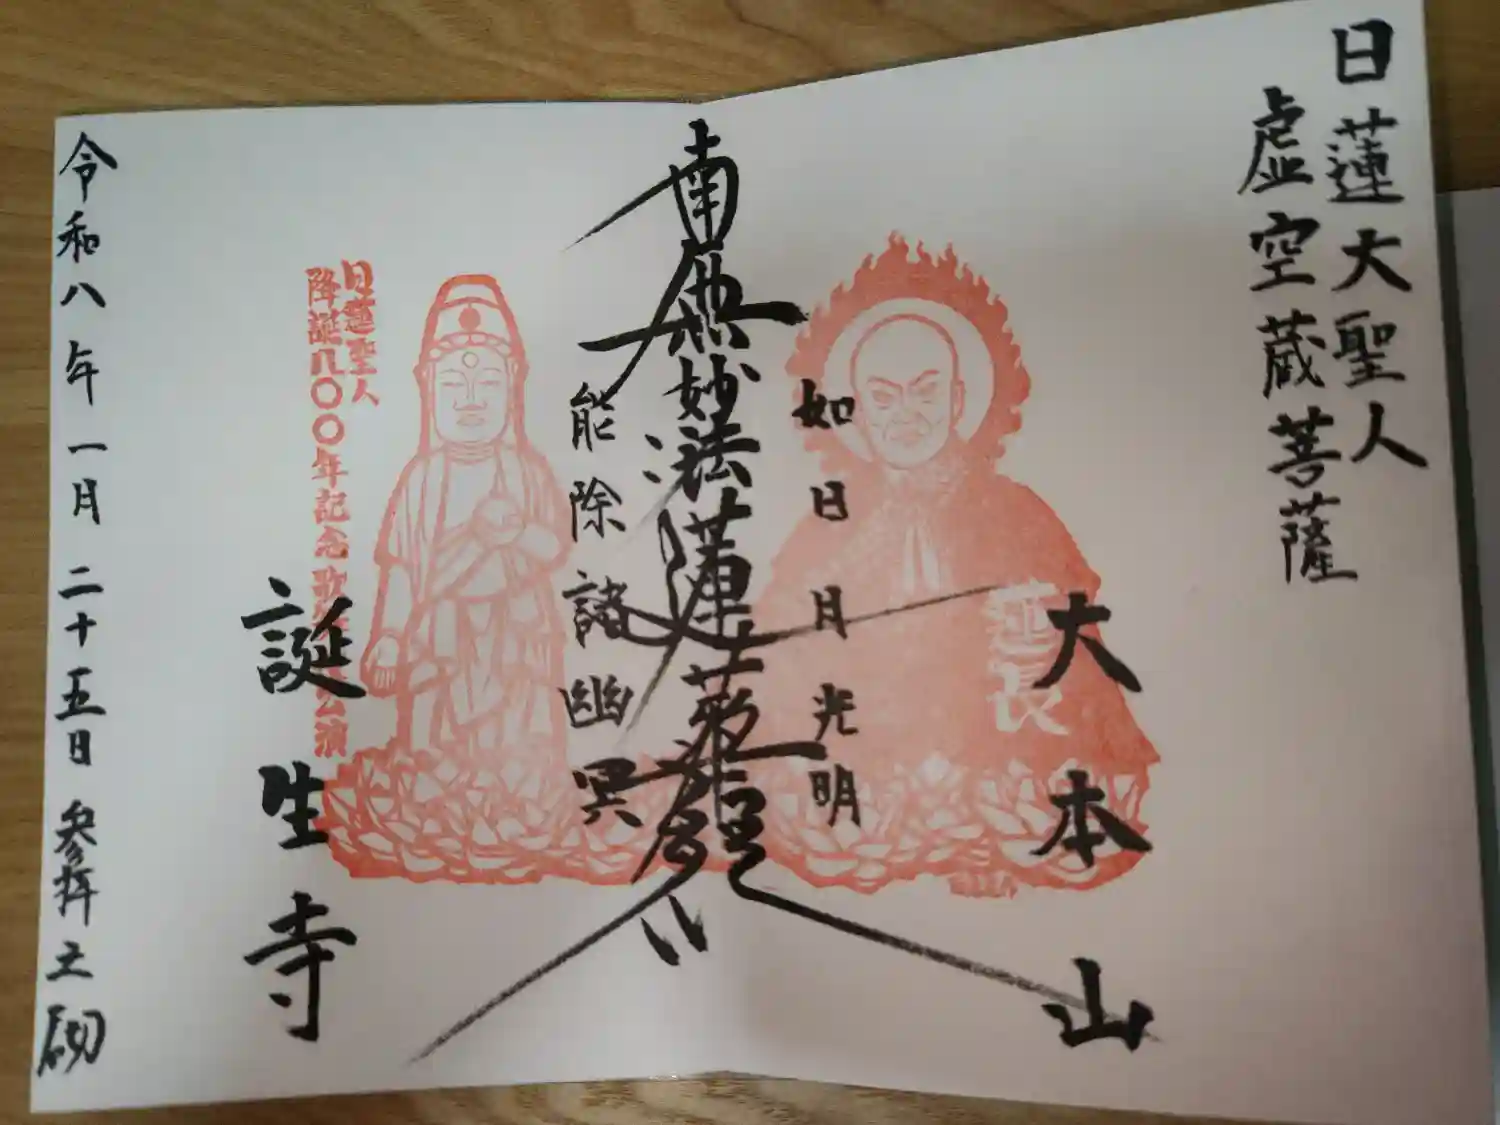 日蓮大聖人
虚空蔵菩薩
大本山
如日月光明
南無妙法蓮華経
能除諸幽冥
誕生寺
日蓮聖人
降誕八〇〇年記念歌
公演
蓮長
令和八年一月二十五日 参拝之砌